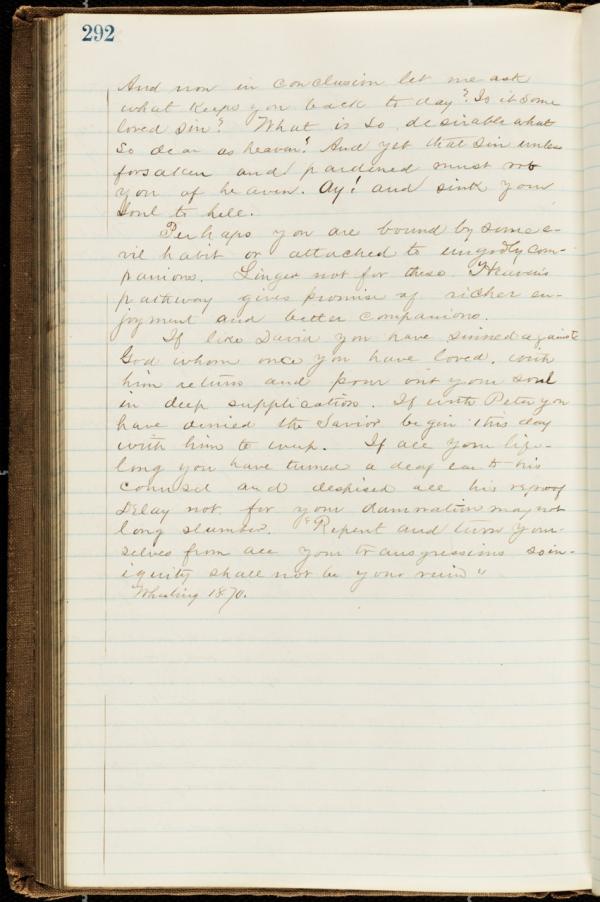 292
And now in conclusion let me ask
what keeps you back to day? Is it some
loved sin? What is so desirable what
so dear as heaven? And yet that sin unless
forsaken and pardened must rob
you of heaven. Ay! and sink your
Soul to hell.
Perhaps you are bound by some e-
vil habit or attached to ungodly com-
panions. Linger not for these. Heaven's
pathway gives promise of richer en-
joyment and better companions.
If like David you have sinned against
God whom once you have loved, with
him return and pour out your soul
in deep supplication. If with Peter you
have denied the Savior begin this day
with him to weep. If all your life-
long you have turned a deaf ear to his
counsel and despised all his reproof
Delay not, for your damnation may not
long slumber. "Repent and turn your-
selves from all your transgressions so in-
iquity shall not be your ruin"
Wheeling 1870.